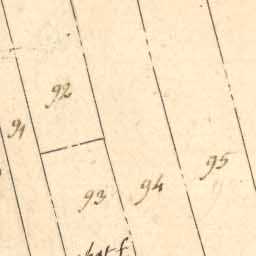 92
91
93
94
95